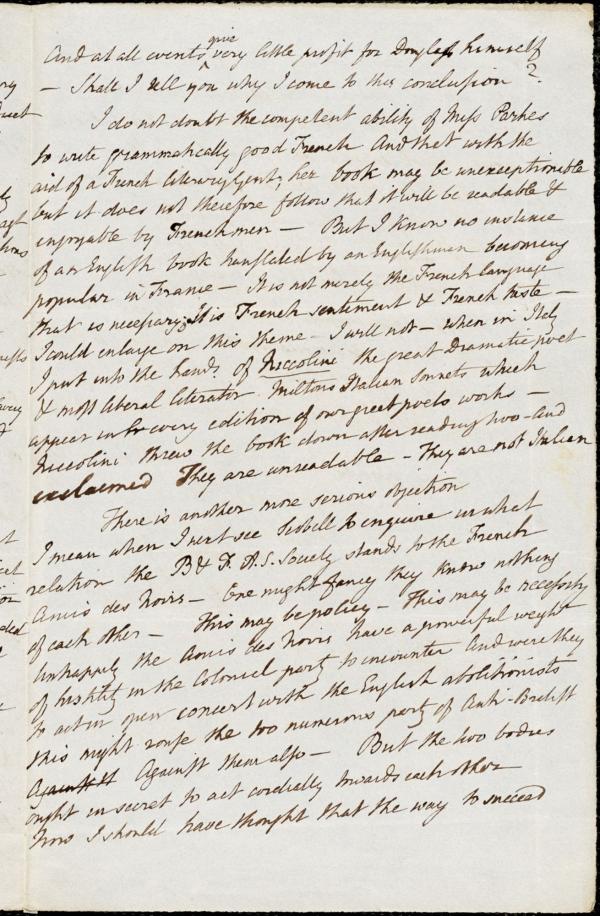 And at all events give very little profit for Douglass himself
— Shall I tell you why I come to this conclusion?
I do not doubt the competent ability of Miss Parkes
to write grammatically good French And that with the
aid of a French literary Gent; her book may be unexceptionable
but it does not therefore follow that it will be readable &
enjoyable by Frenchmen — But I know no instance
of an English book translated by an Englishman becoming
popular in France — It is not merely the French language
that is necessary; It is French sentiment & French taste —
I could enlarge on this theme — I will not — when in Italy
I put into the hands of Niccolini the great Dramatic poet
& most liberal literator Miltons Italian Sonnets which
appear in every edition of our great poets works —
Niccolini threw the book down after reading two — and
exclaimed They are unreadable — They are not Italian
There is another more serious objection
I mean when I next see Scobell to enquire in what
relation the B & F. A.S. Society stands to the French
Amis des Noirs — One might fancy they know nothing
of each other — This may be policy — This may be necessity
Unhappily the Amis des Noirs have a powerful weight
of hostility in the Colonial party to encounter And were they
to act in open concert with the English abolitionists
this might rouse the too numerous party of Anti-British
Against it Against them also — But the two bodies
ought in secret to act cordially towards each other
Now I should have thought that the way to succeed